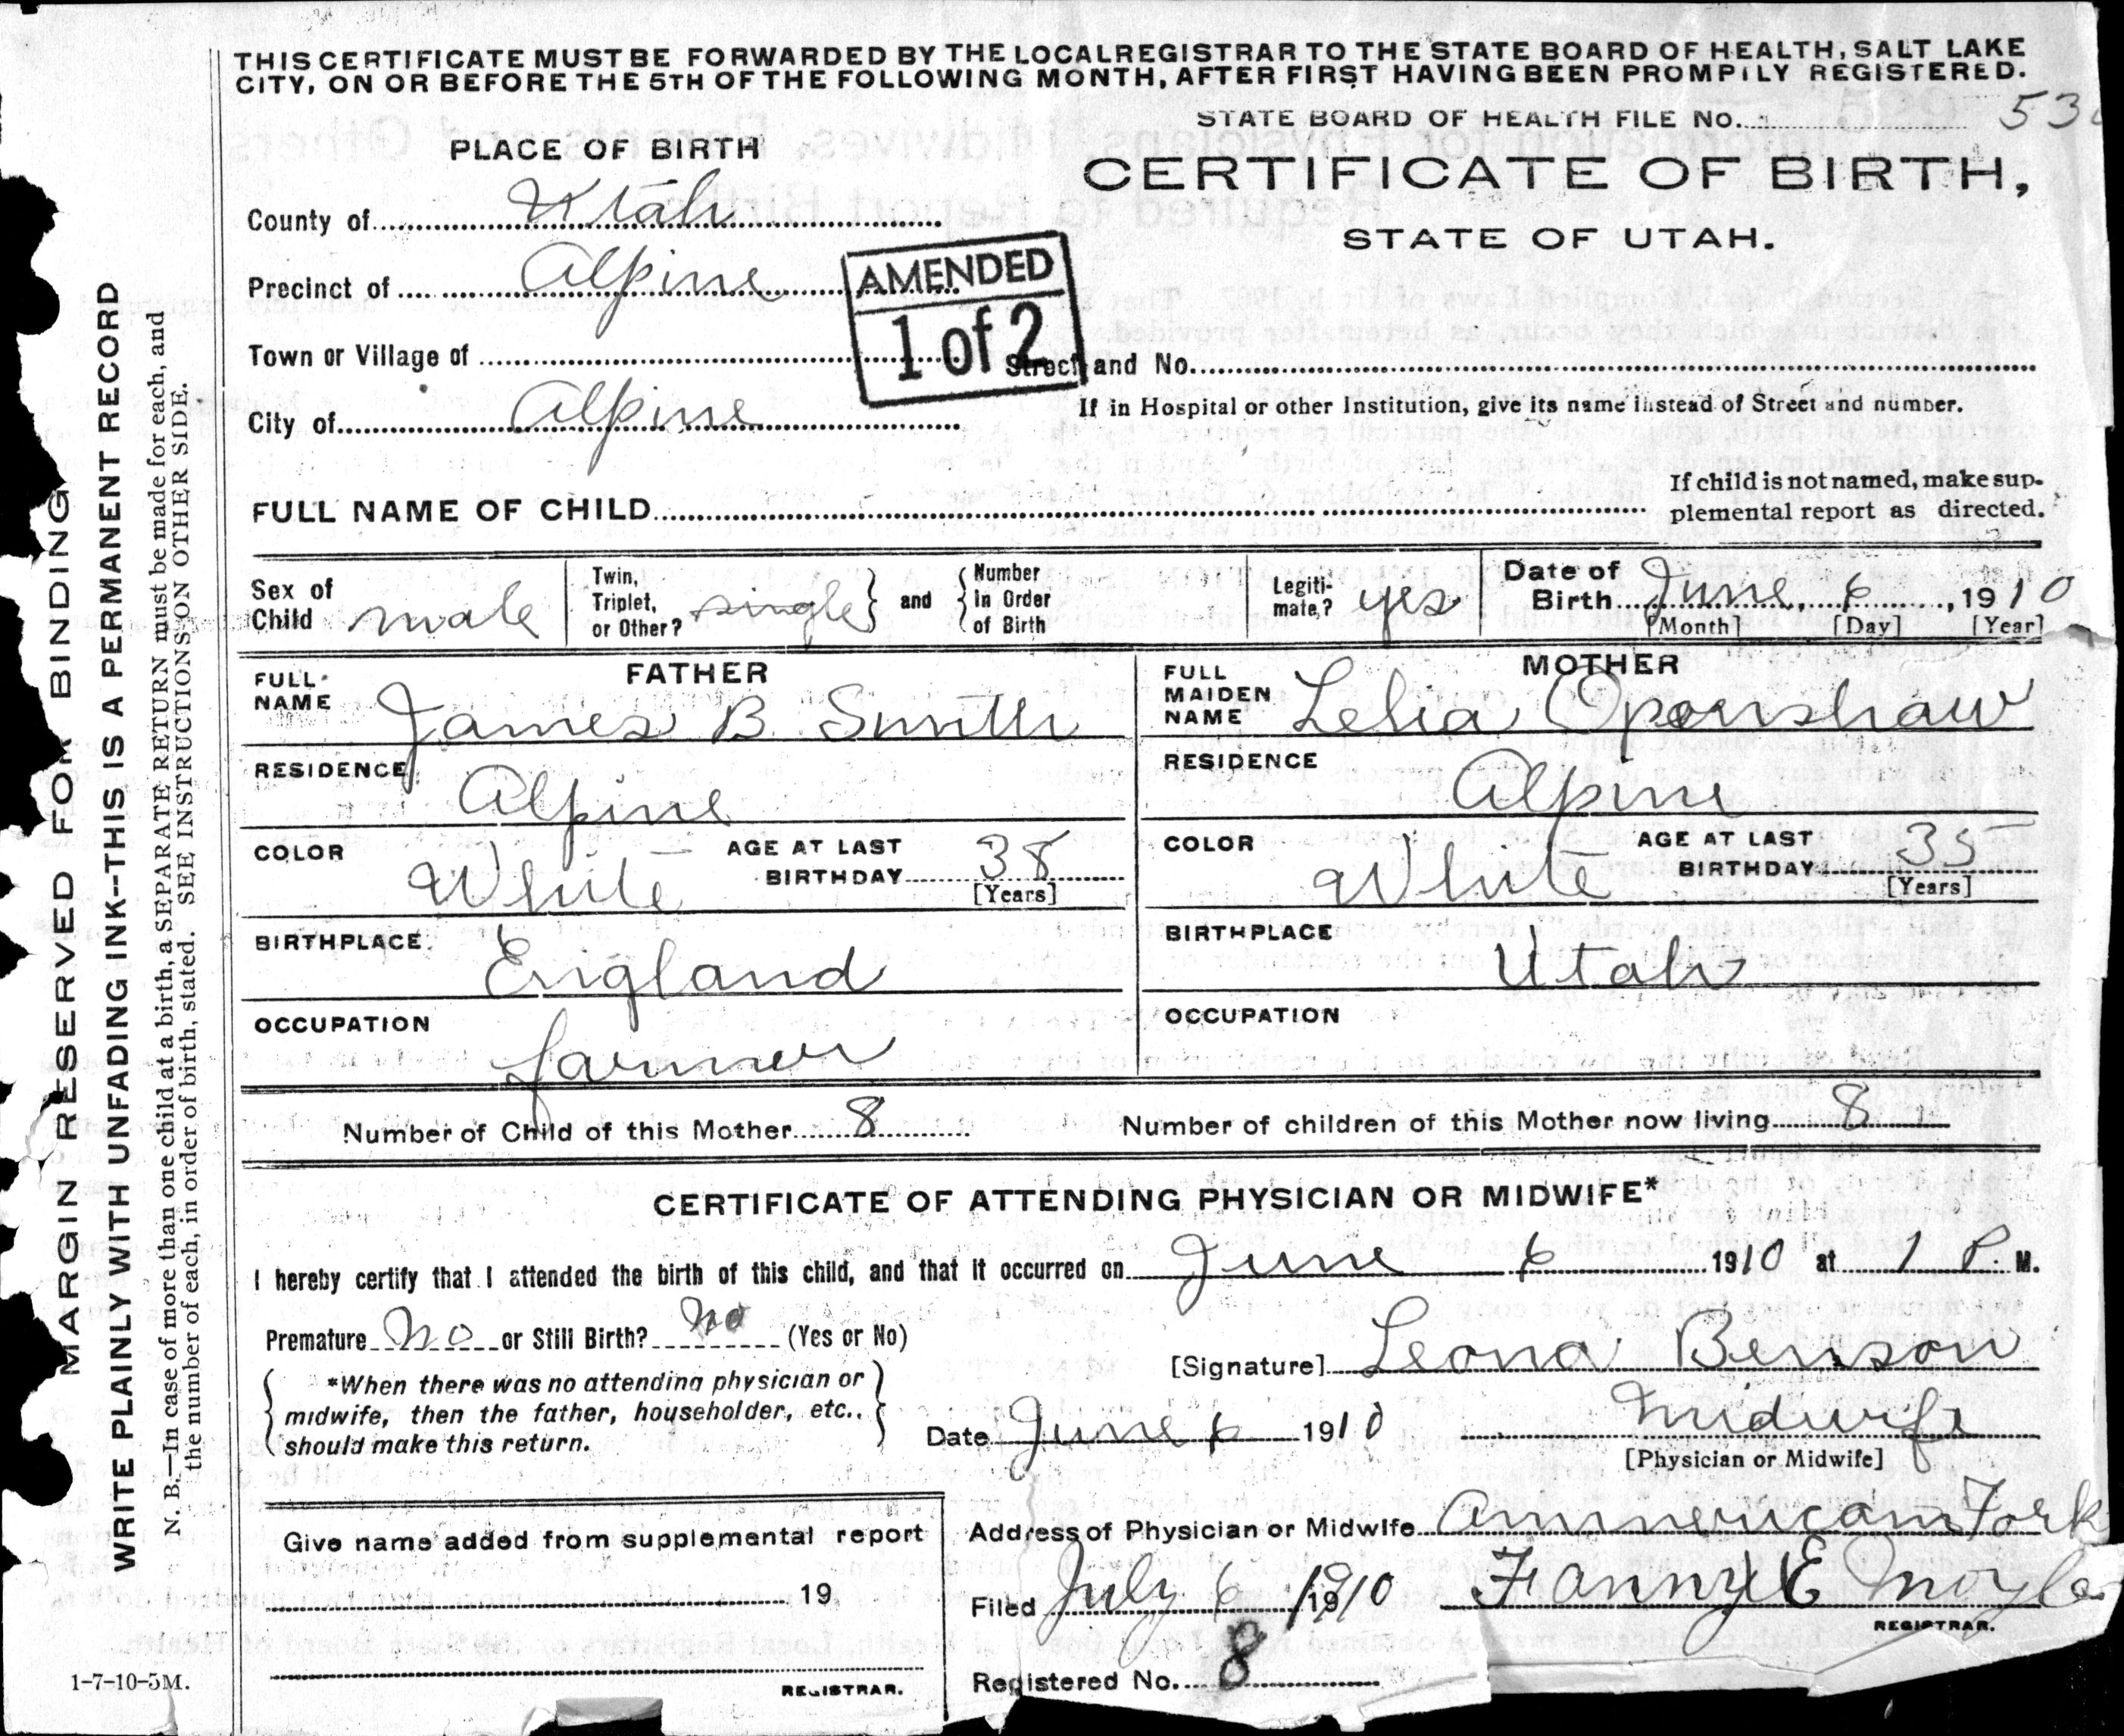 THIS CERTIFICATE MUST BE FORWARDED BY THE LOCAL REGISTRAR TO THE STATE BOARD OF HEALTH, SALT LAKE
CITY, ON OR BEFORE THE 5TH OF THE FOLLOWING MONTH, AFTER FIRST HAVING BEEN PROMPTLY REGISTERED.
STATE BOARD OF HEALTH FILE NO.
PLACE OF BIRTH
CERTIFICATE OF BIRTH,
STATE OF UTAH.
County of Utah
Precinct of Alpine
AMENDED
1 of 2
Town or Village of
Street and No.
City of Alpine
If in Hospital or other Institution, give its name instead of Street and number.
FULL NAME OF CHILD
If child is not named, make sup-
plemental report as directed.
Sex of
Child male
Twin,
Triplet,
or Other? single
and
Number
in Order
of Birth
Legiti-
mate? yes
Date of
Birth June, 6, 1910
[Month] [Day] [Year]
FATHER
FULL
NAME James B Smith
MOTHER
FULL
MAIDEN
NAME Lelia Openshaw
RESIDENCE Alpine
RESIDENCE Alpine
COLOR White
AGE AT LAST
BIRTHDAY 38
[Years]
COLOR White
AGE AT LAST
BIRTHDAY 35
[Years]
BIRTHPLACE England
BIRTHPLACE Utah
OCCUPATION farmer
OCCUPATION
Number of Child of this Mother 8
Number of children of this Mother now living 8
CERTIFICATE OF ATTENDING PHYSICIAN OR MIDWIFE*
I hereby certify that I attended the birth of this child, and that it occurred on June 6 1910 at 1 P. M.
Premature No or Still Birth? No (Yes or No)
[Signature] Leona Benson
*When there was no attending physician or
midwife, then the father, householder, etc.,
should make this return.
Date June 6 1910
Midwife
[Physician or Midwife]
Give name added from supplemental report
19
REGISTRAR.
Address of Physician or Midwife Ammerican Fork
Filed July 6 1910
Fanny E Moyle
REGISTRAR.
Registered No. 8
1-7-10-5M.
MARGIN RESERVED FOR BINDING
WRITE PLAINLY WITH UNFADING INK--THIS IS A PERMANENT RECORD
N. B.—In case of more than one child at a birth, a SEPARATE RETURN must be made for each, and
the number of each, in order of birth, stated. SEE INSTRUCTIONS ON OTHER SIDE.